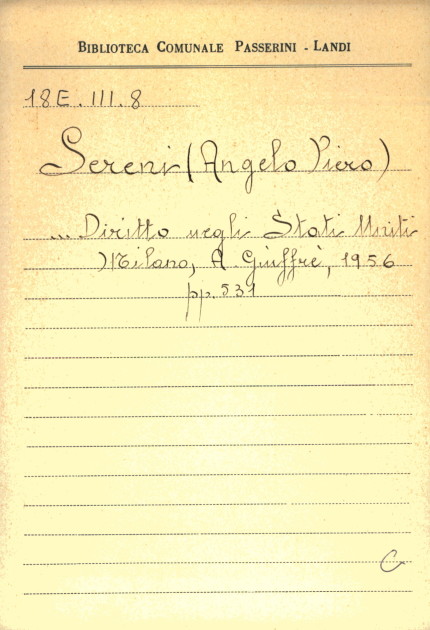 BIBLIOTECA COMUNALE PASSERINI - LANDI
18E.III.8
Sereni (Angelo Piero)
... Diritto negli Stati Uniti
Milano, A. Giuffrè, 1956
pp. 531
C